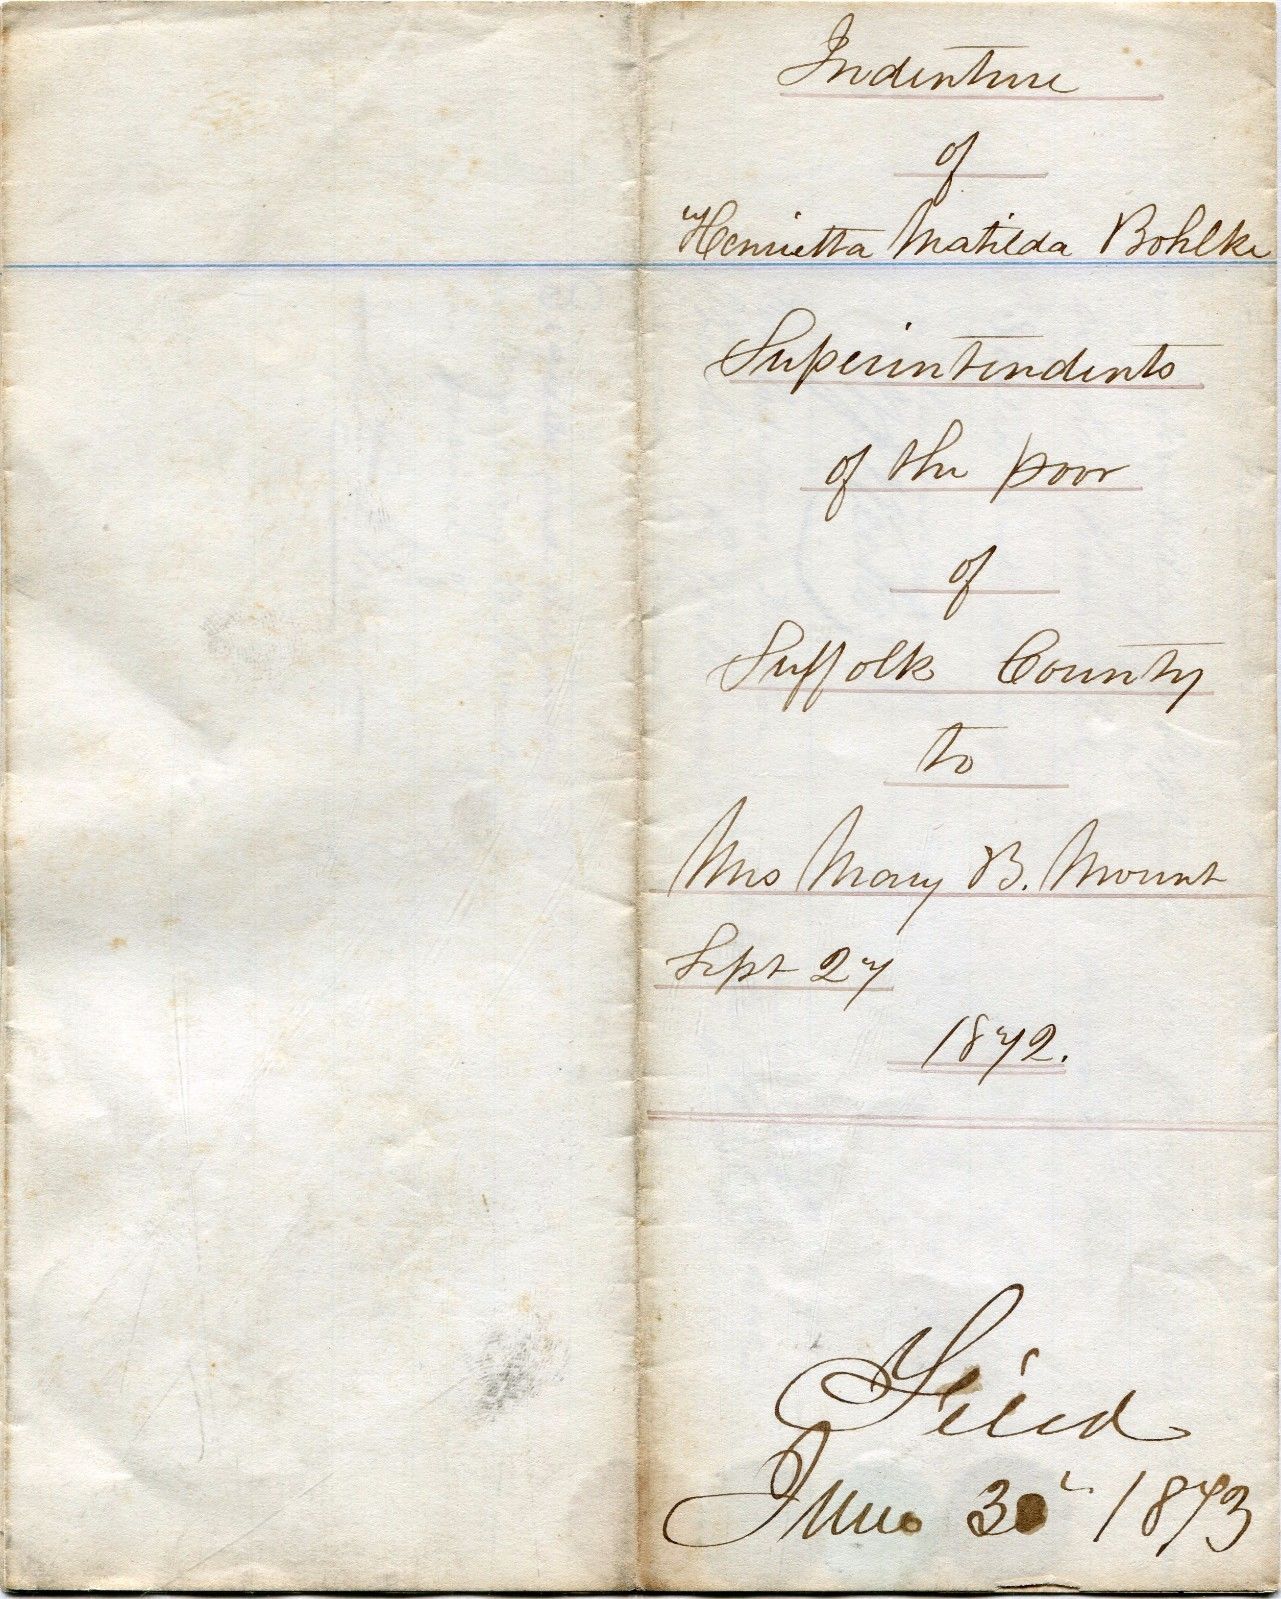 Indenture
of
Henrietta Matilda Bohlke
Superintendents
of the poor
of
Suffolk County
to
Mrs Mary B. Mount
Sept 27
1872.
Filed
June 30 1873